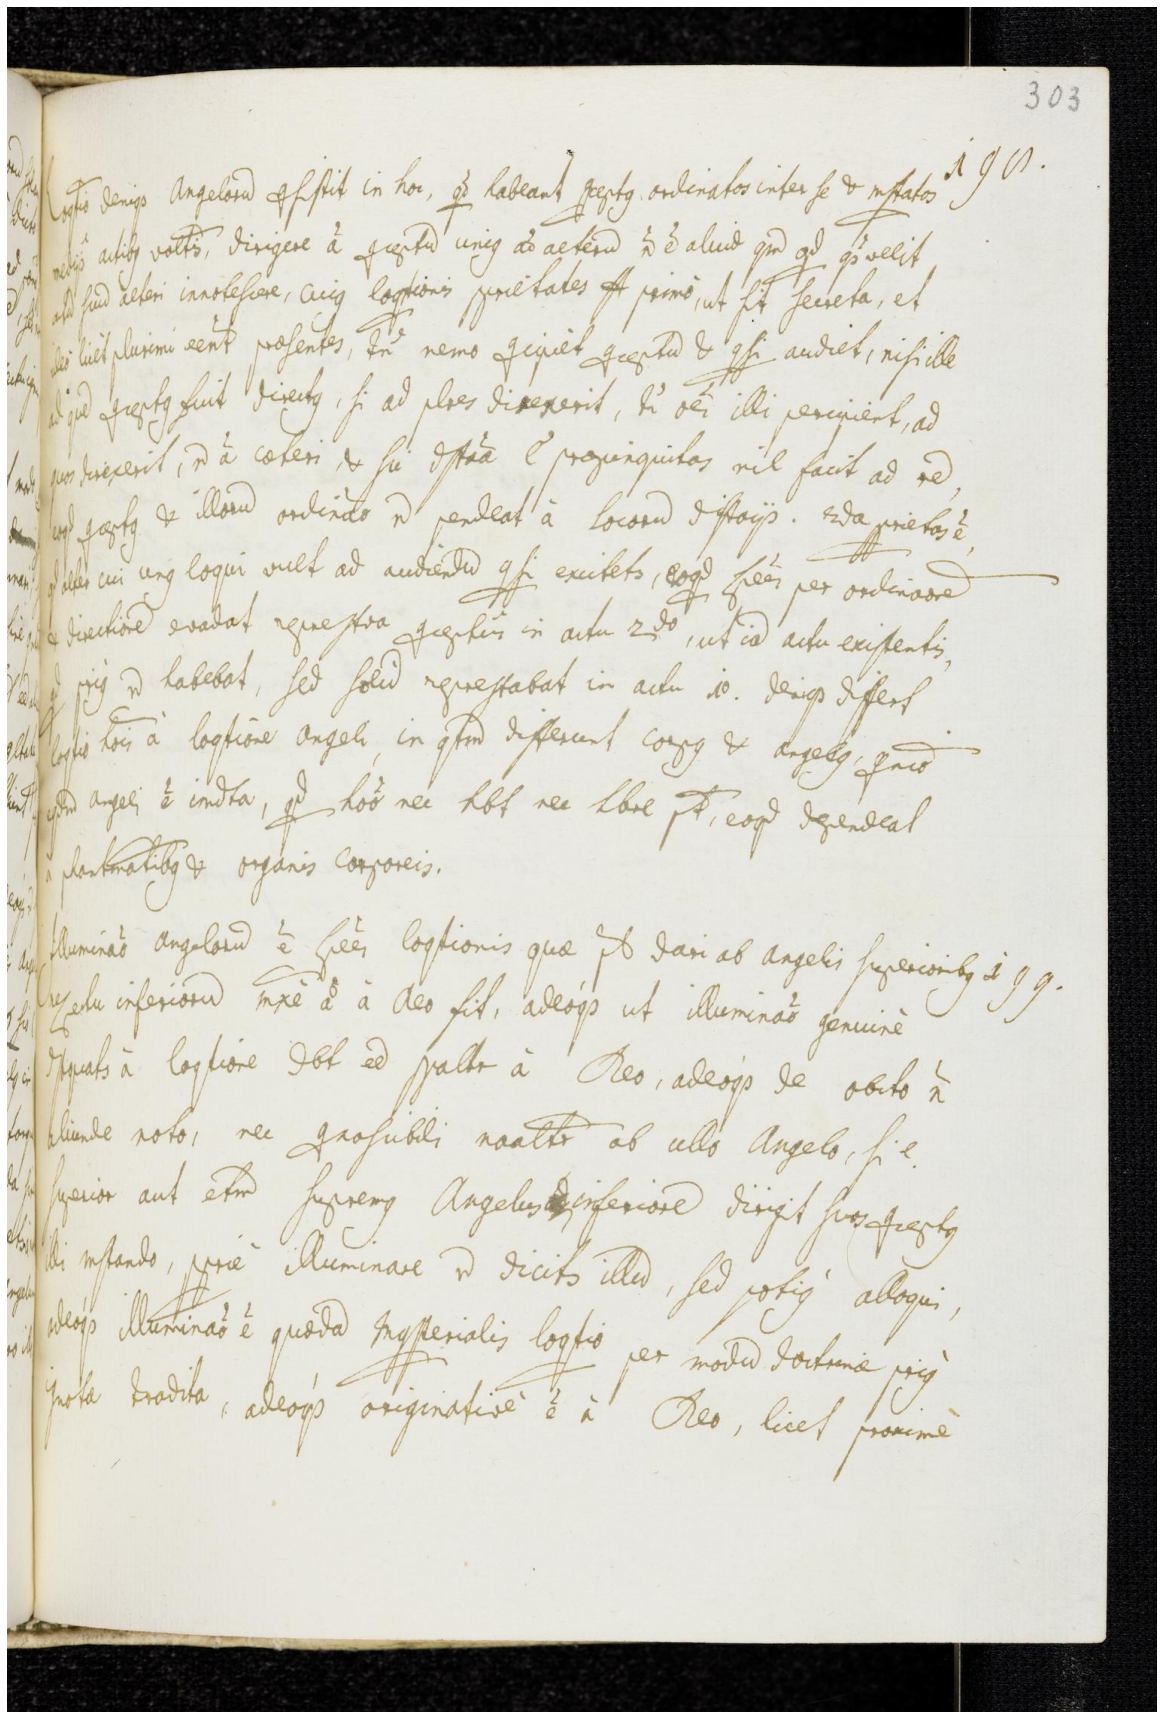 303
198.
Loq̃tio deniqs Angelorũ ꝯsistit in hoc, qd̃ habeant ꝯceptꝯ ordinatos inter se & mr̃statos
medijs actibꝯ volt̃is, dirigere ã ꝯceptũ uniꝯ ad alterũ ñ ẽ aliud qm̃ qd̃ qs velit
suũ alteri innotescere, cuiꝯ loq̃tionis pr̃ietates st̃ primò, ut sit̃ secreta, et
ideò licèt plurimi eẽnt præsentes, tñ nemo ꝯcipiet ꝯceptũ & qsi audiet, nisi ille
ad quẽ ꝯceptꝯ fuit directꝯ, si ad pl̃res direxerit, tñ oẽs illi percipient, ad
quos direxerit, ñ ã cæteri, & sic dist̃ia l̃ propinquitas nil facit ad rẽ,
eoqd̃ ꝯceptꝯ & illorũ ordinão ñ pendeat à locorũ dist̃ijs. 2da pr̃ietas ẽ,
qd̃ alter cui unꝯ loqui vult ad audiendũ qsi excitetr, eoqd̃ spẽes per ordinãõrẽ
& directionẽ evadat repræst̃va ꝯceptûs in actu 2do, ut iã actu existentis,
qd̃ priꝯ ñ habebat, sed solũ repræst̃abat in actu 1o. deniqs differt
loq̃tio hoĩs à loq̃tiõne Angeli, in q̃tm̃ differunt corpꝯ & angelꝯ,
angeli ẽ imd̃ta, qd̃ hoõ nec hb̃t nec hb̃re pt̃, eoqd̃ dependeat
à phantasmatibꝯ & organis corporeis.
199.
Illuminãõ angelorũ ẽ spẽes loq̃tionis quæ pt̃ dari ab angelis superioribꝯ
respectu inferiorũ mx̃è ãd à Deo fit, adeóqs ut illuminãõ genuinè
dist̃quatr à loq̃tiõne db̃t eẽ sp̃altr à Deo, adeóqs de obcto ñ
aliunde noto, nec ꝯnoscibili naal̃tr ab ullo Angelo, si e.
superior aut etm̃ supremꝯ Angelus ad inferiorẽ dirigit suos ꝯceptꝯ
illi mr̃stando, pr̃iè illuminare ñ dicitr illũ, sed potiꝯ alloqui,
adeóqs illuminãõ ẽ quædã Mysterialis loq̃tio per modũ doctrinæ priꝯ
ignotæ tradita, adeóqs originativè ẽ à Deo, licet proximè